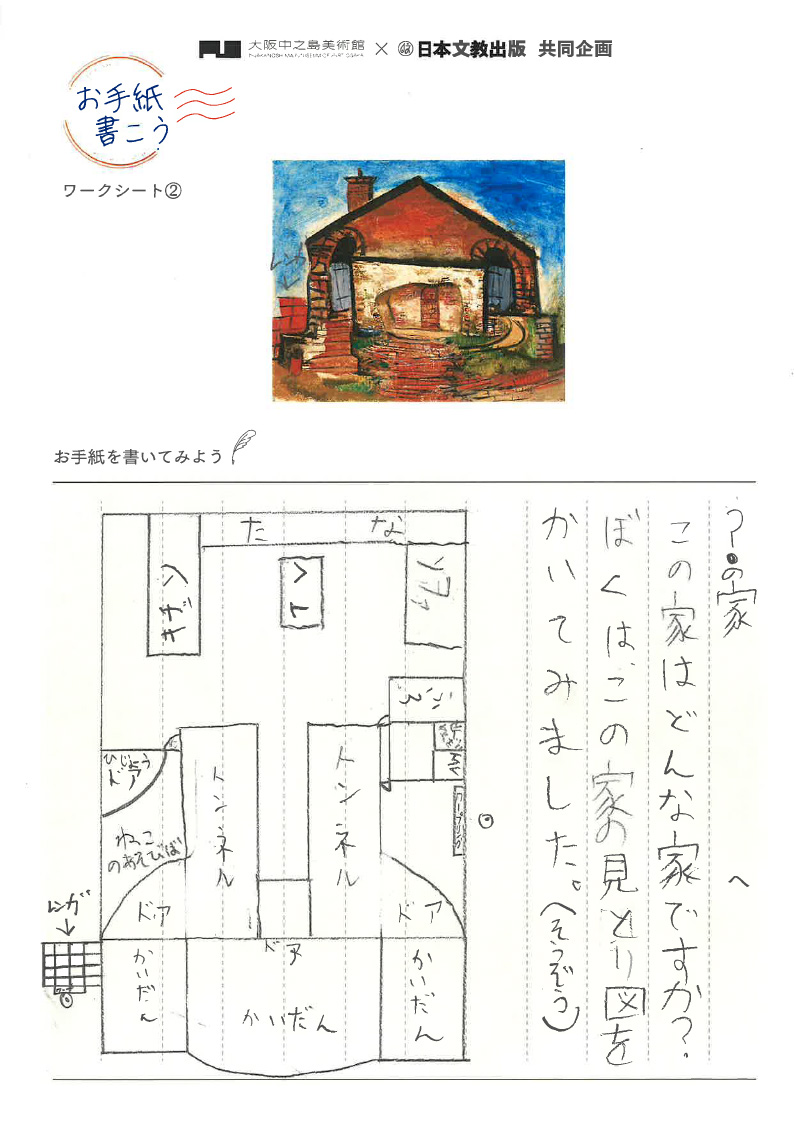 大阪中之島美術館 × 日本文教出版 共同企画
NAKANOSHIMA MUSEUM OF ART, OSAKA
お手紙
書こう
ワークシート②
レンガ
お手紙を書いてみよう
?の家 へ
この家はどんな家ですか?
ぼくは、この家の見とり図を
かいてみました。(そうぞう)
たな
キッチン
ソファ
ひじょう
ドア
ねっこ
のあそびば
トンネル
トンネル
ドア
ドア
ドア
レンガ
かいだん
かいだん
かいだん